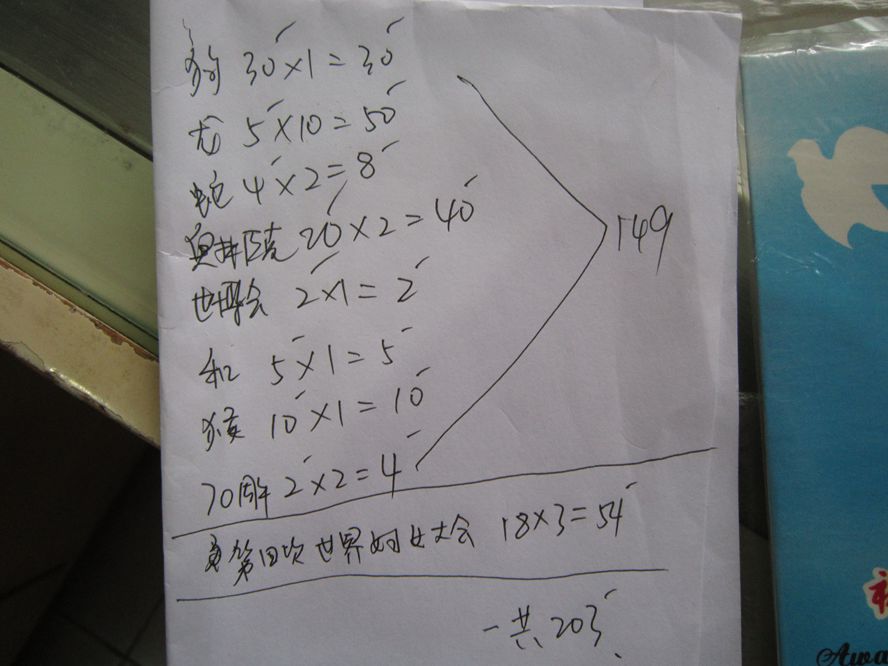 狗 30×1=30
龙 5×10=50
蛇 4×2=8
奥林匹克 20×2=40
世博会 2×1=2
和 5×1=5
猴 10×1=10
70周年 2×2=4
149
第四次世界妇女大会 18×3=54
一共 203